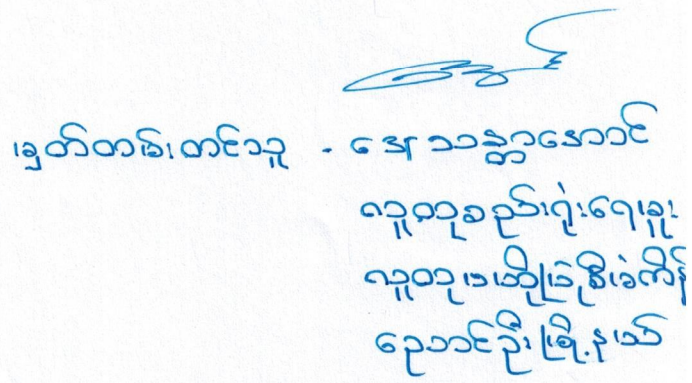 မှတ်တမ်းတင်သူ - ဒေါ်သန္တာအောင်
လူထုစည်းရုံးရေးမှူး
လူထုဗဟိုပြုစီမံကိန်း
ညောင်ဦးမြို့နယ်